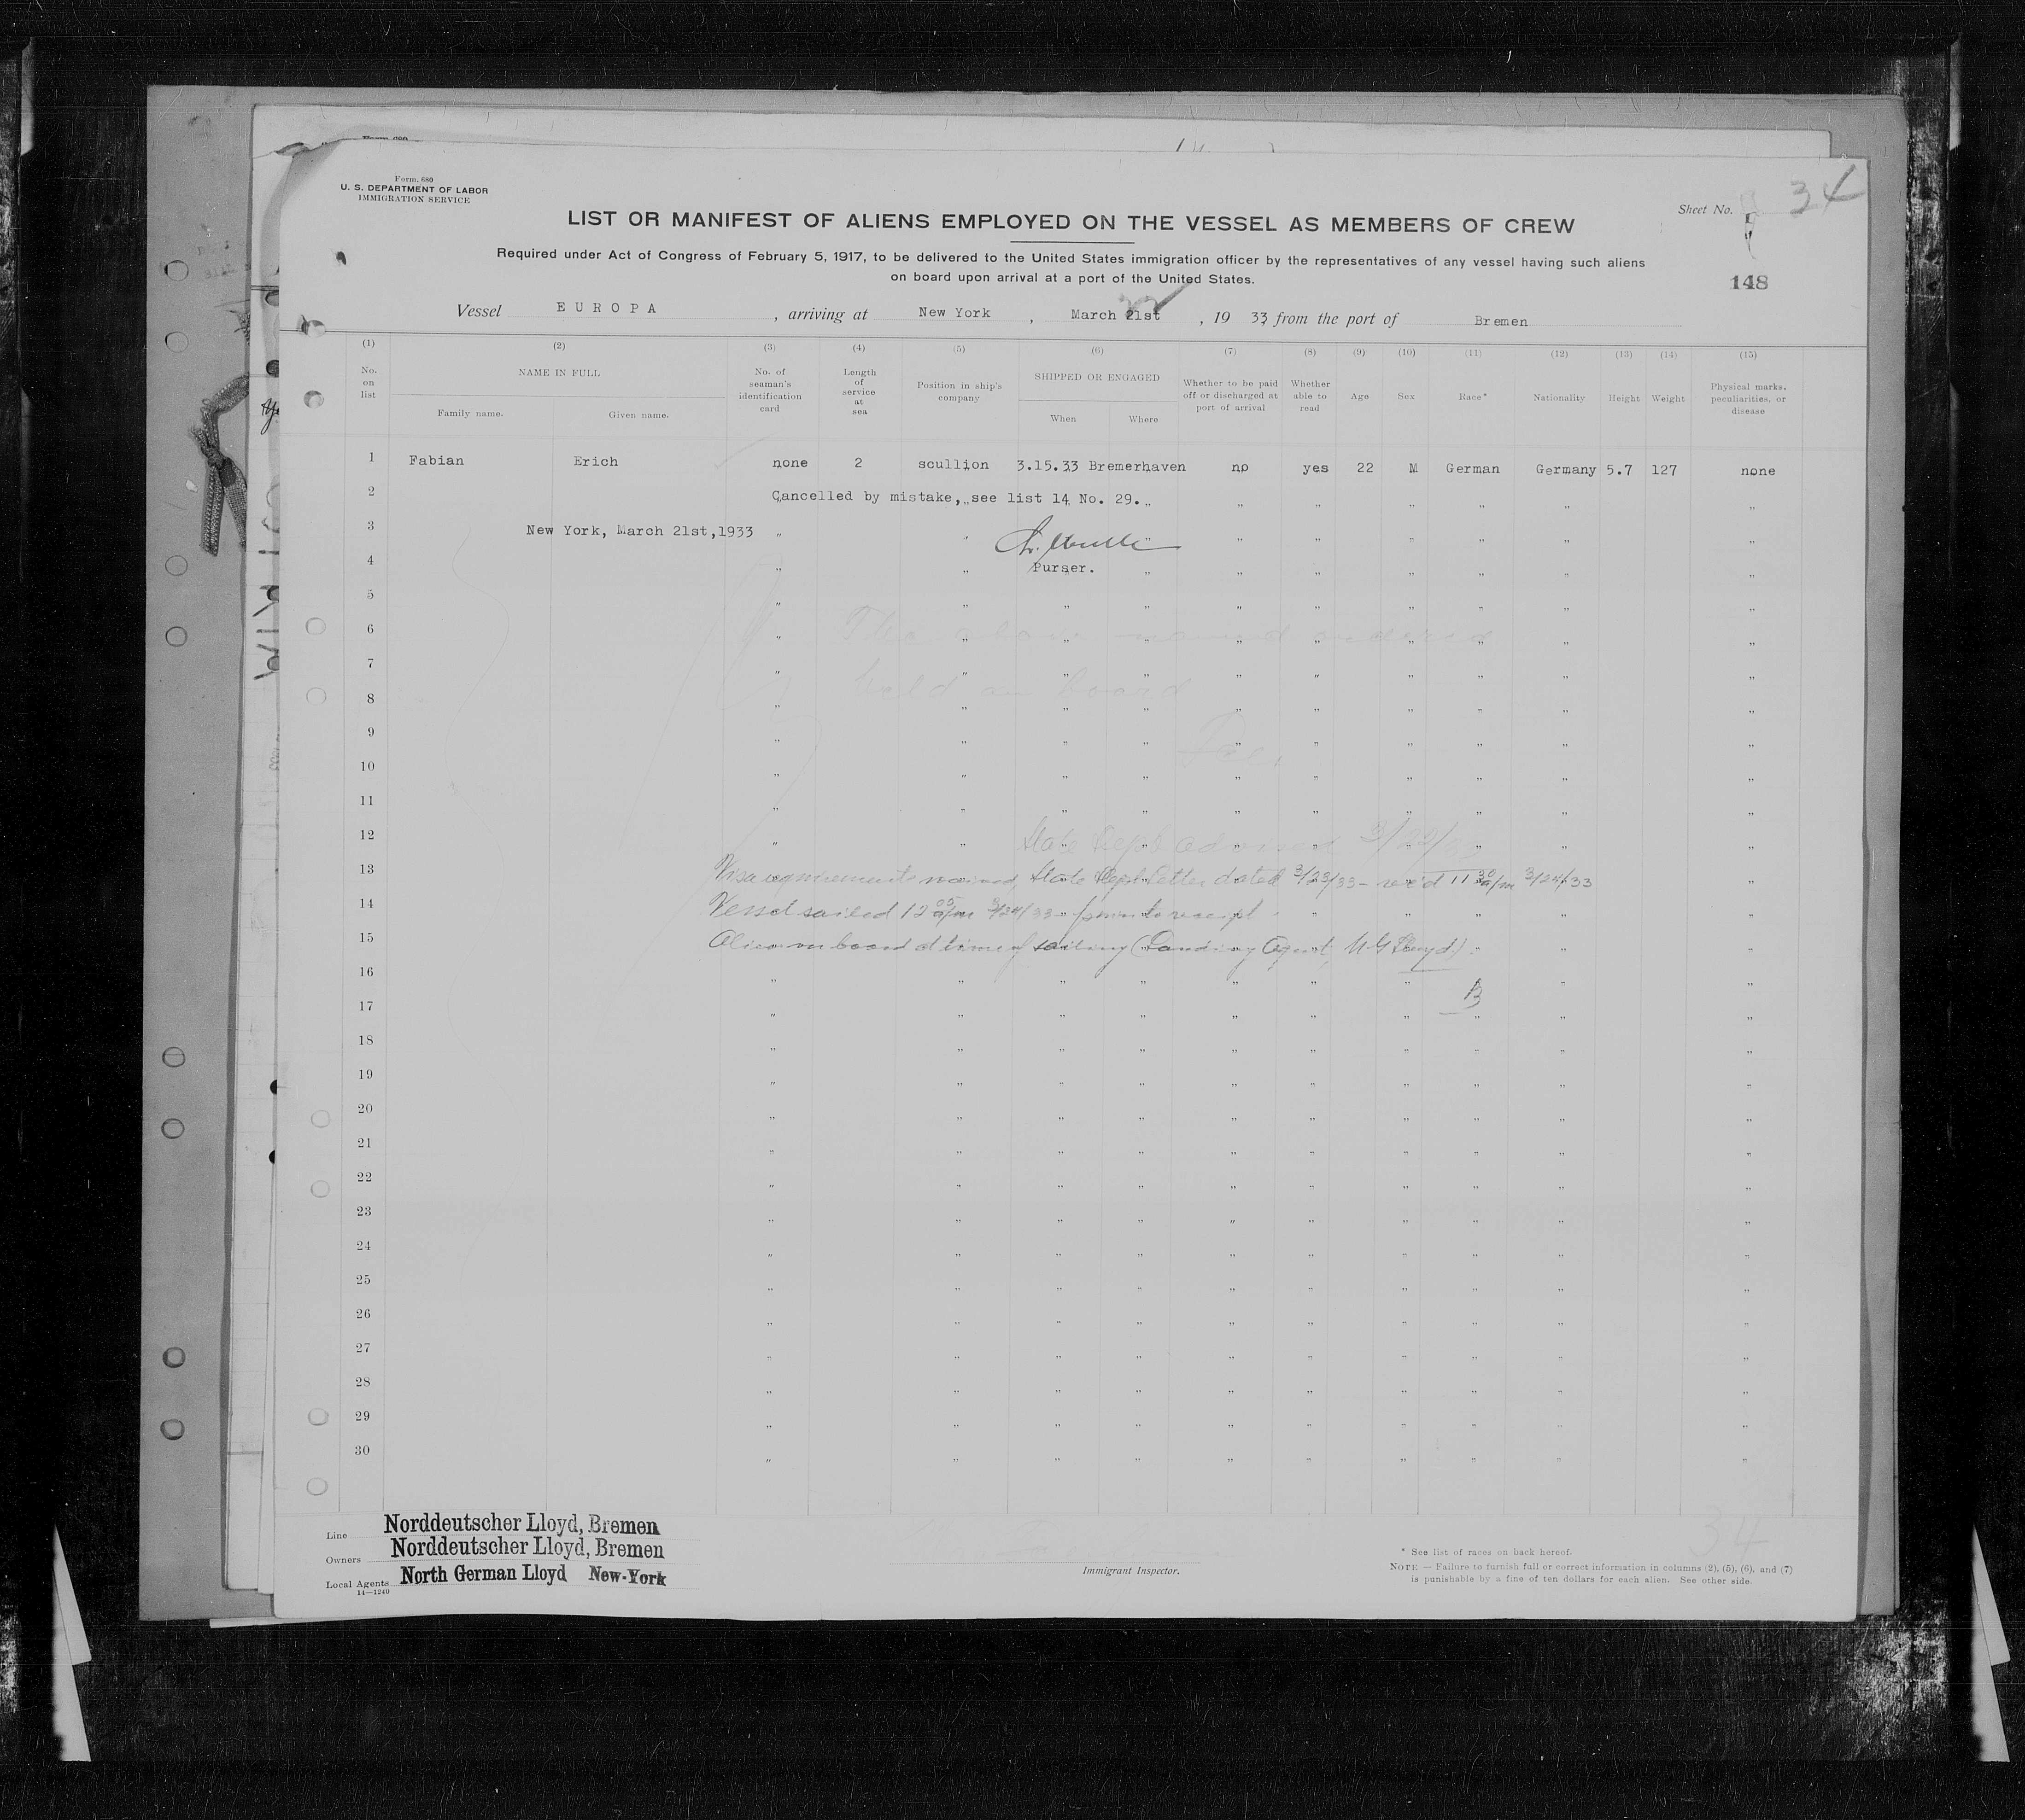 Form 680
U. S. DEPARTMENT OF LABOR
IMMIGRATION SERVICE
Sheet No. 34
LIST OR MANIFEST OF ALIENS EMPLOYED ON THE VESSEL AS MEMBERS OF CREW
Required under Act of Congress of February 5, 1917, to be delivered to the United States immigration officer by the representatives of any vessel having such aliens
on board upon arrival at a port of the United States.
148
Vessel EUROPA, arriving at New York, March 21st, 1933, from the port of Bremen
(1) (2) (3) (4) (5) (6) (7) (8) (9) (10) (11) (12) (13) (14) (15)
No. on list NAME IN FULL Family name. Given name. No. of seaman's identification card Length of service at sea Position in ship's company SHIPPED OR ENGAGED When Where Whether to be paid off or discharged at port of arrival Whether able to read Age Sex Race* Nationality Height Weight Physical marks, peculiarities, or disease
1 Fabian Erich none 2 scullion 3.15.33 Bremerhaven no yes 22 M German Germany 5.7 127 none
2 Cancelled by mistake, see list 14 No. 29.
3 New York, March 21st,1933
4 Purser.
5
6 The above named ordered
7 held on board
8
9
10
11
12 State Dept advised 3/22/33
13 Visa requirements waived, State Dept letter dated 3/23/33 - rec'd 11 30 a/m 3/24/33
14 Vessel sailed 12 05 a/m 3/24/33 - prior to receipt
15 Alien on board at time of sailing (Landing Agent, N.G. Lloyd.)
16
17 B
18
19
20
21
22
23
24
25
26
27
28
29
30
Line Norddeutscher Lloyd, Bremen
Owners Norddeutscher Lloyd, Bremen
Local Agents North German Lloyd New-York
14—1240
Immigrant Inspector.
34
* See list of races on back hereof.
NOTE — Failure to furnish full or correct information in columns (2), (5), (6), and (7)
is punishable by a fine of ten dollars for each alien. See other side.